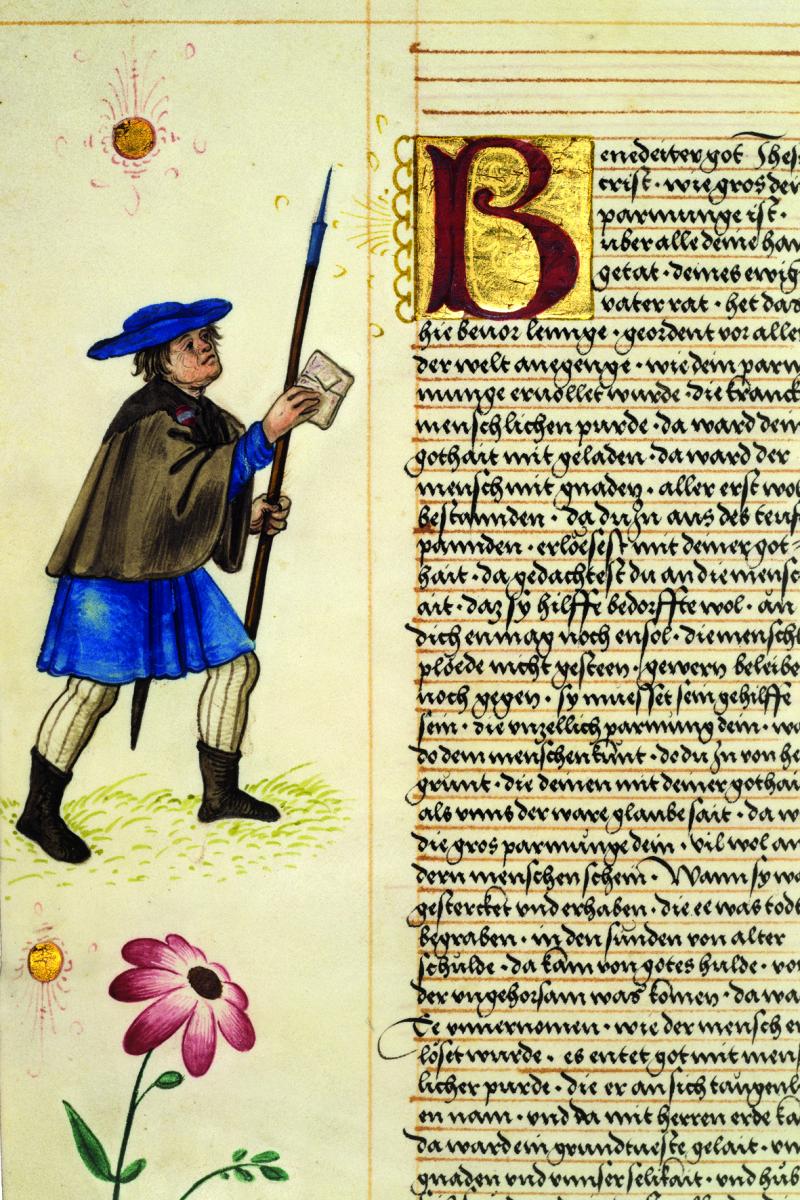 Benedeiter got Jhesu
crist · wie gros dein
parmunge ist ·
über alle deine han
getat · deines ewig
vater rat · het das
hie beuor lennge · geordent vor aller
der welt anegenge · wie dein parm
munge eruollet wurde · die kranck
menschlichen purde · da ward dein
gothait mit geladen · da ward der
mensch mit gnaden · aller erst wol
bestannden · da du Jn aus des teufe
pannden · erlösest mit deiner got=
hait · da gedachtest du an die mensch
ait · daz sy hilffe bedorffte wol · an
dich enmag noch ensol · die menschl
plöede nicht gesteen · gewern beleibe
noch gegen · sy muesset sein gehilffe
sein · die vnzellich parmung dein · wa
do dem menschen kunt · do du Jn von he
grunt · die deinen mit deiner gothai
als vnns der ware glaube sait · da w
die gros parmunge dein · vil wol an
dern menschen schein · Wann sy wa
gestercket vnd erhaben · die ee was todt
begraben · in den sünden von alter
schulde · da kam von gotes hulde · vo
der vngehorsam was komen · da wa
Ee vernomen · wie der mensch er
löset wurde · es entet got mit mens
licher purde · die er an sich taugenl
en nam · vnd da mit herren erde ka
da ward ein grundtueste gelait · vn
gnaden vnd vnnser selikait · vnd hüb